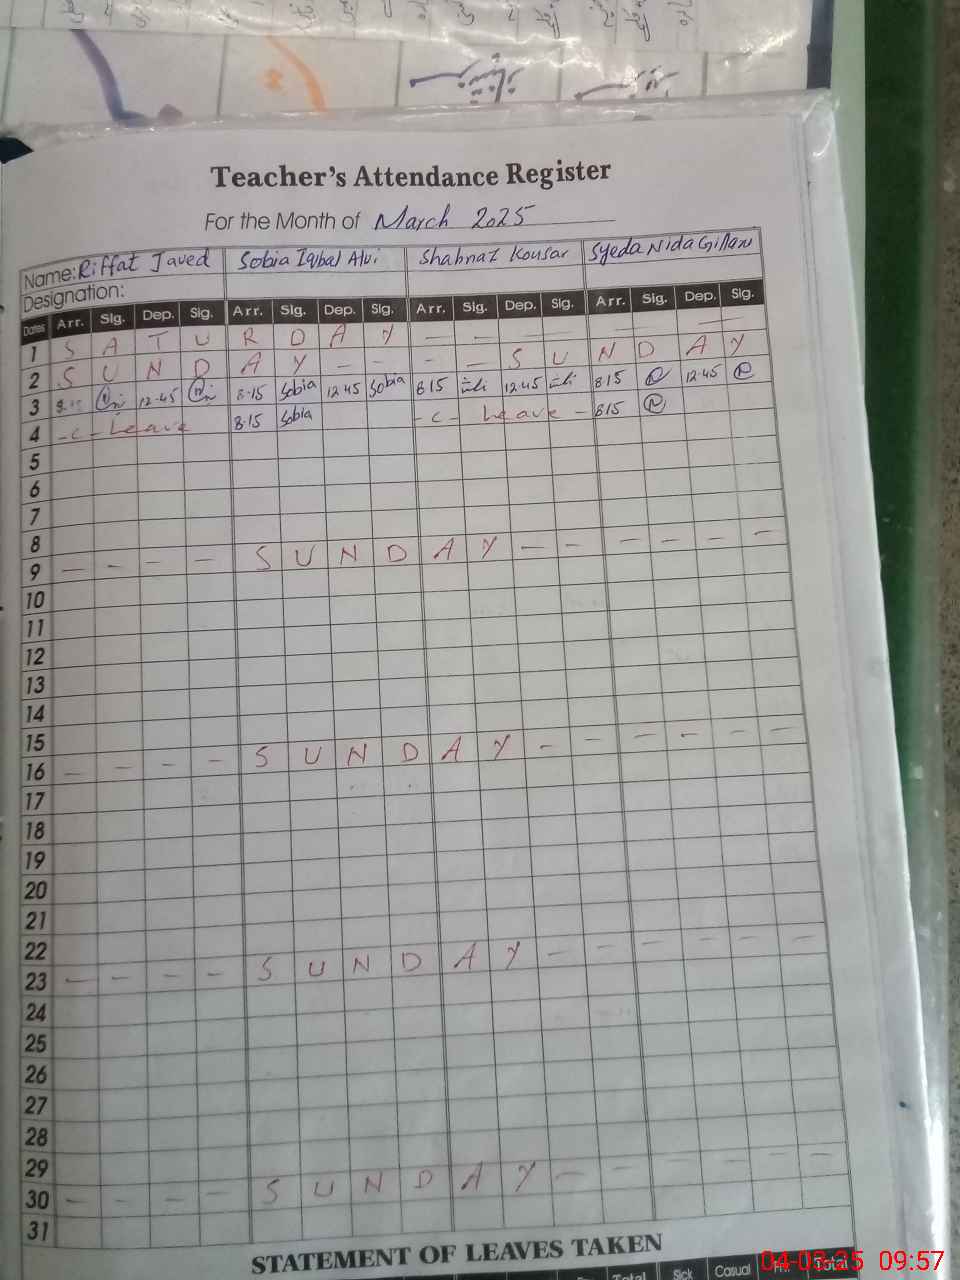 Teacher's Attendance Register
For the Month of March 2025
Name: Riffat Javed Sobia Iqbal Alvi Shahnaz Kousar Syeda Nida Gillani
Designation:
Dates Arr. Sig. Dep. Sig. Arr. Sig. Dep. Sig. Arr. Sig. Dep. Sig. Arr. Sig. Dep. Sig.
1 S A T U R D A Y — — — — — —
2 S U N D A Y – – – — S U N D A Y
3 8.15 12.45 8.15 Sobia 12.45 Sobia 8.15 12.45 8.15 12.45
4 - C - Leave 8.15 Sobia - C - Leave - 8.15
5
6
7
8
9 — — — — S U N D A Y — — — — — —
10
11
12
13
14
15
16 — — — — S U N D A Y — — — — — —
17
18
19
20
21
22
23 — — — — S U N D A Y — — — — — —
24
25
26
27
28
29
30 — — — — S U N D A Y — — — — — —
31
STATEMENT OF LEAVES TAKEN
Total Sick Casual Total
04-03-25 09:57